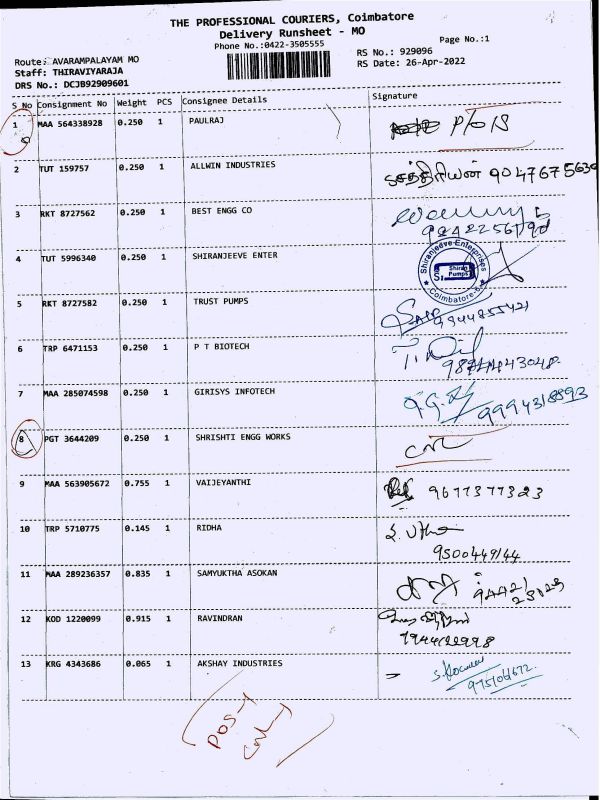 THE PROFESSIONAL COURIERS, Coimbatore
Delivery Runsheet - MO
Phone No.:0422-3505555
Page No.:1
Route: AVARAMPALAYAM MO
RS No.: 929096
Staff: THIRAVIYARAJA
RS Date: 26-Apr-2022
DRS No.: DCJB92909601
S No Consignment No Weight PCS Consignee Details Signature
1 MAA 564338928 0.250 1 PAULRAJ
2 TUT 159757 0.250 1 ALLWIN INDUSTRIES 9047675630
3 RKT 8727562 0.250 1 BEST ENGG CO
4 TUT 5996340 0.250 1 SHIRANJEEVE ENTER
Shiranjeeve Enterprises
Shiran Pumps
Coimbatore
5 RKT 8727582 0.250 1 TRUST PUMPS
9944855421
6 TRP 6471153 0.250 1 P T BIOTECH
7 MAA 285074598 0.250 1 GIRISYS INFOTECH
9994318593
8 PGT 3644209 0.250 1 SHRISHTI ENGG WORKS
9 MAA 563905672 0.755 1 VAIJEYANTHI 9677377323
10 TRP 5710775 0.145 1 RIDHA
9500449144
11 MAA 289236357 0.835 1 SAMYUKTHA ASOKAN
12 KOD 1220099 0.915 1 RAVINDRAN
13 KRG 4343686 0.065 1 AKSHAY INDUSTRIES